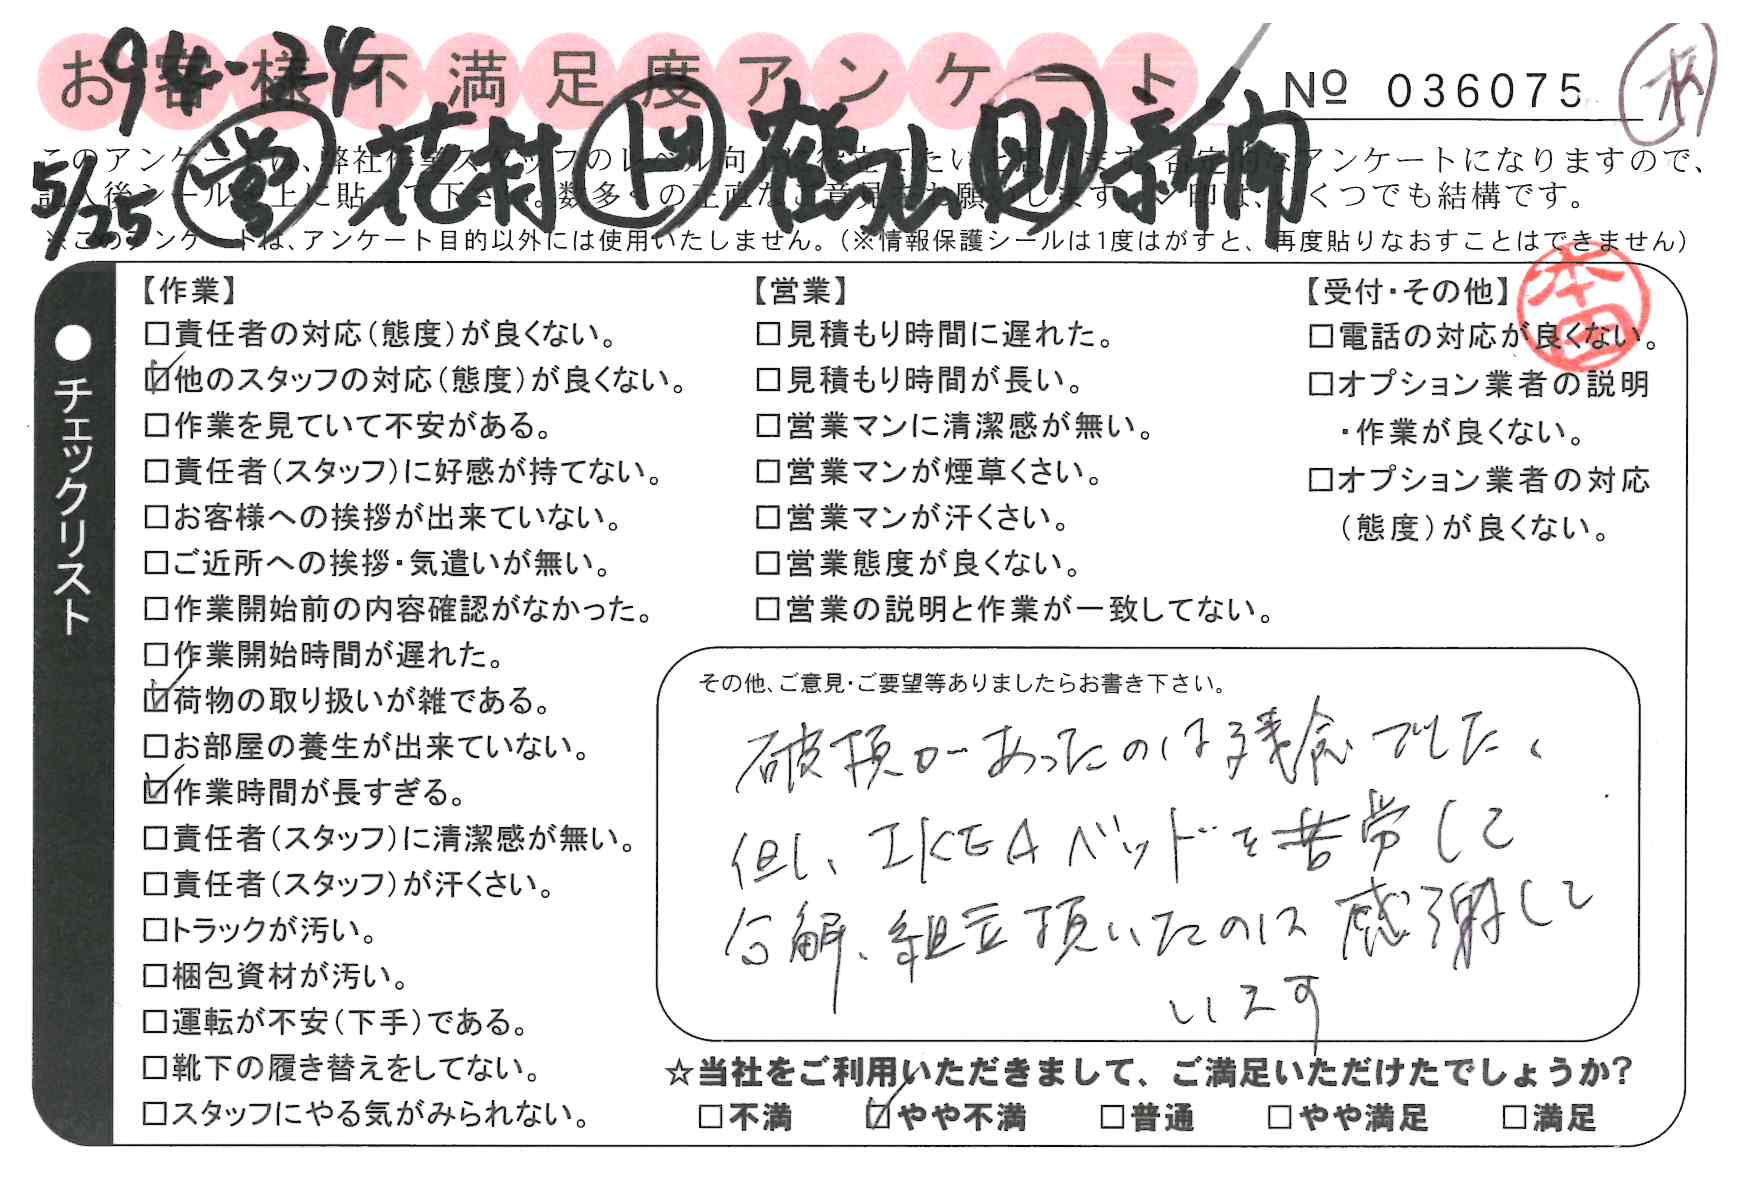 お客様不満足度アンケート
№ 036075
94-24
5/25 営 花村 ト 鶴山 助 新開
このアンケートは、弊社作業スタッフのレベル向上に役立てたいと思います。否定的なアンケートになりますので、
記入後シールを上に貼って下さい。数多くの正直なご意見をお願いします。レ印は、いくつでも結構です。
※このアンケートは、アンケート目的以外には使用いたしません。（※情報保護シールは1度はがすと、再度貼りなおすことはできません）
●チェックリスト
【作業】
□責任者の対応（態度）が良くない。
☑他のスタッフの対応（態度）が良くない。
□作業を見ていて不安がある。
□責任者（スタッフ）に好感が持てない。
□お客様への挨拶が出来ていない。
□ご近所への挨拶・気遣いが無い。
□作業開始前の内容確認がなかった。
□作業開始時間が遅れた。
☑荷物の取り扱いが雑である。
□お部屋の養生が出来ていない。
☑作業時間が長すぎる。
□責任者（スタッフ）に清潔感が無い。
□責任者（スタッフ）が汗くさい。
□トラックが汚い。
□梱包資材が汚い。
□運転が不安（下手）である。
□靴下の履き替えをしてない。
□スタッフにやる気がみられない。
【営業】
□見積もり時間に遅れた。
□見積もり時間が長い。
□営業マンに清潔感が無い。
□営業マンが煙草くさい。
□営業マンが汗くさい。
□営業態度が良くない。
□営業の説明と作業が一致してない。
【受付・その他】
本田
□電話の対応が良くない。
□オプション業者の説明
・作業が良くない。
□オプション業者の対応
（態度）が良くない。
その他、ご意見・ご要望等ありましたらお書き下さい。
破損があったのは残念でした、
但し、IKEAベッドを苦労して
分解、組立頂いたのは感謝して
います
☆当社をご利用いただきまして、ご満足いただけたでしょうか？
□不満 ☑やや不満 □普通 □やや満足 □満足